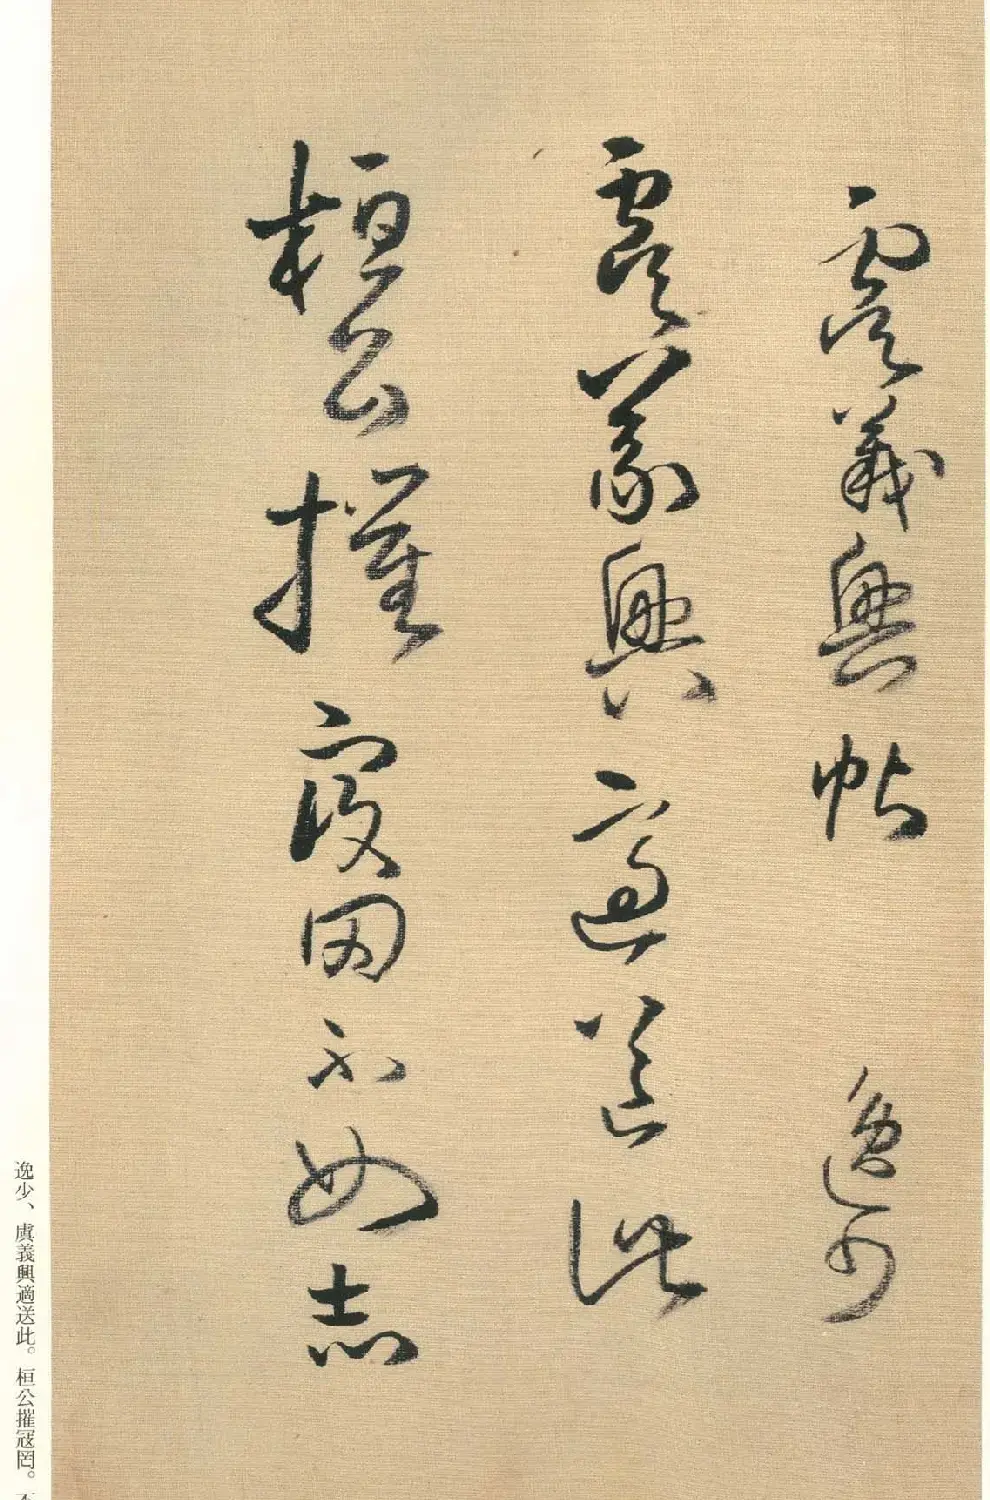 虞義興帖 逸少
虞義興適送此
桓公摧寇罔不如志
逸少、虞義興適送此。桓公摧寇罔。不